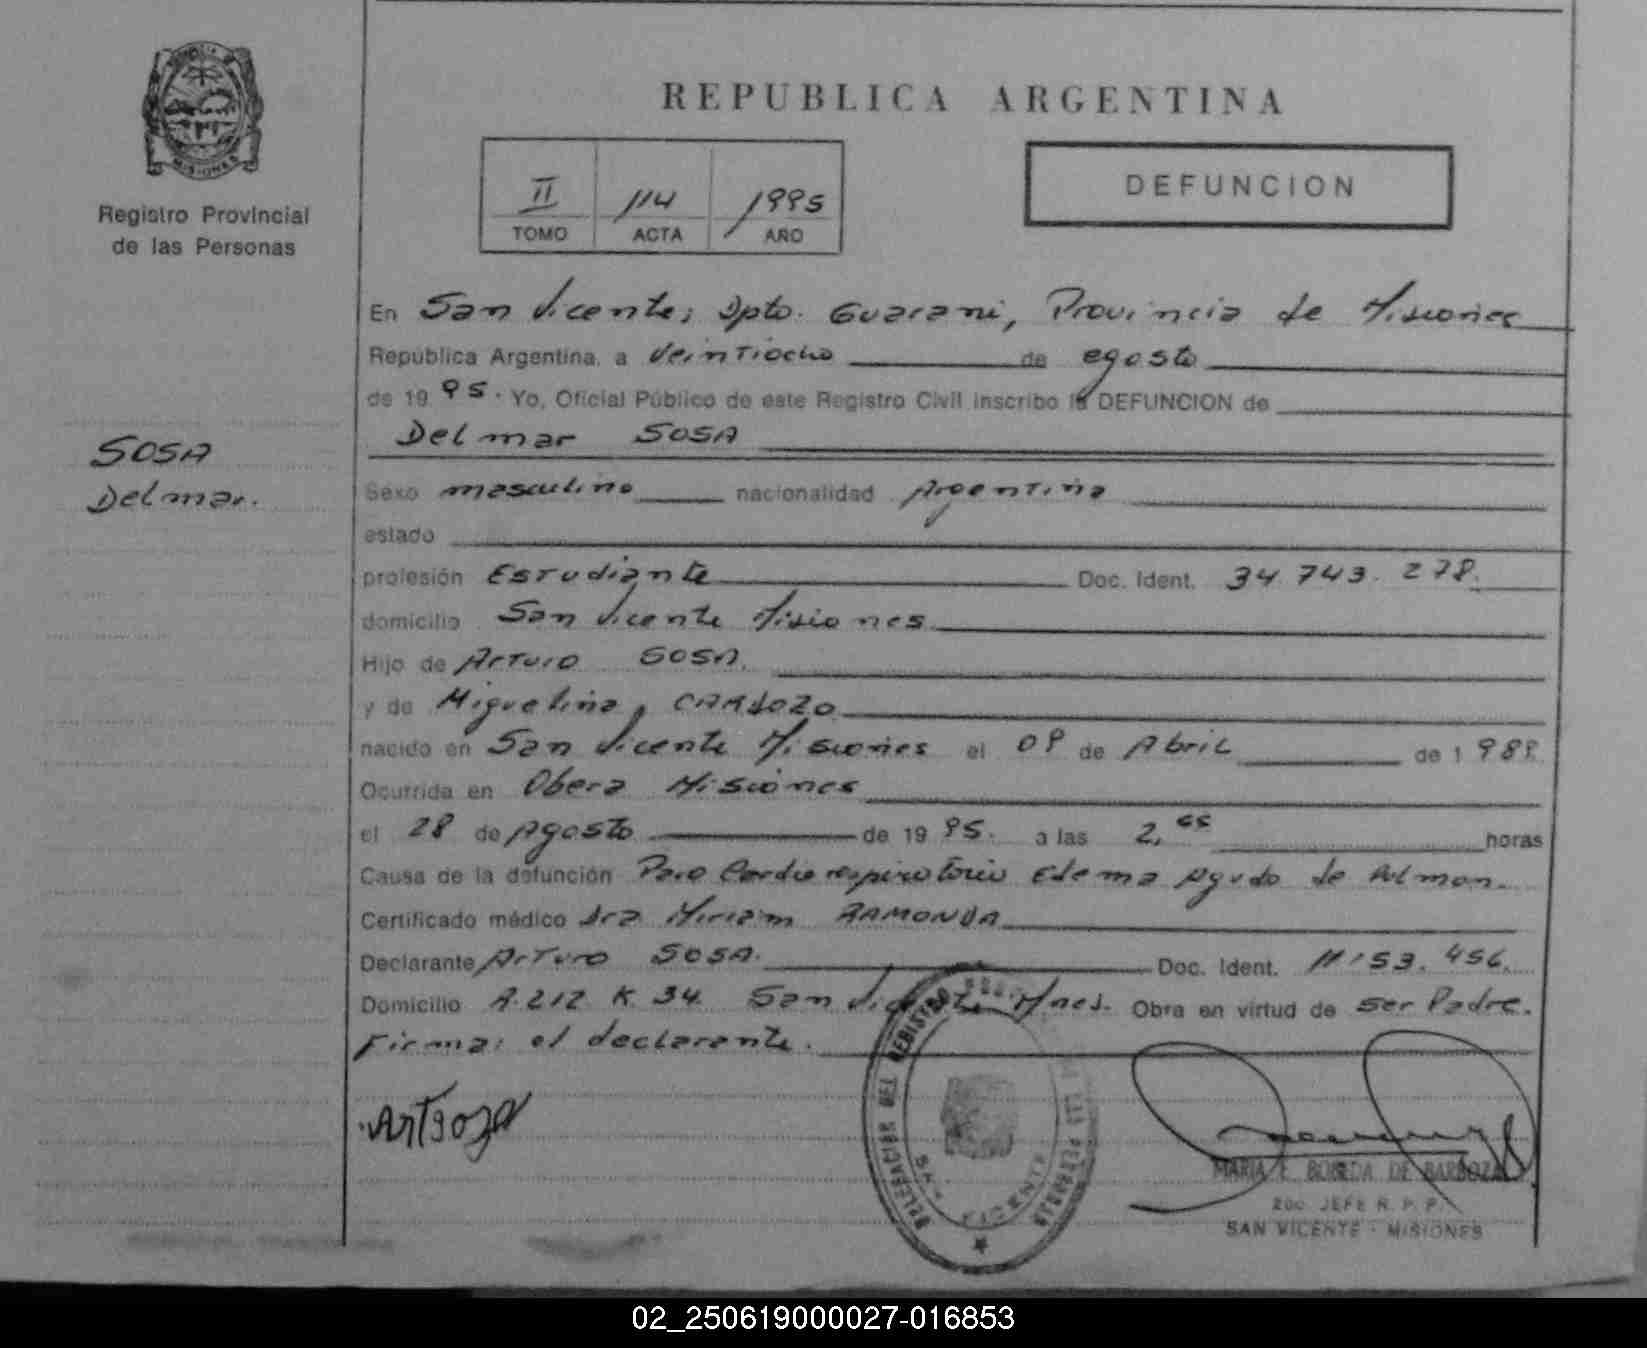 MISIONES
Registro Provincial
de las Personas
SOSA
Delmar.
REPUBLICA ARGENTINA
II 114 1995
TOMO ACTA AÑO
DEFUNCION
En San Vicente; Dpto. Guarani, Provincia de Misiones
República Argentina, a veintiocho de agosto
de 19 95. Yo, Oficial Público de este Registro Civil inscribo la DEFUNCION de
Delmar SOSA
Sexo masculino nacionalidad Argentina
estado
profesión Estudiante Doc. Ident. 34.743.278.
domicilio San Vicente Misiones
Hijo de Arturo SOSA.
y de Miguelina CARDOZO
nacido en San Vicente Misiones el 09 de Abril de 1 989.
Ocurrida en Obera Misiones
el 28 de Agosto de 19 95. a las 2, horas
Causa de la defunción Paro Cardio respiratorio Edema Agudo de Pulmon.
Certificado médico Dra Miriam RAMONDA
Declarante Arturo SOSA. Doc. Ident. 11.153.456.
Domicilio R.212 K. 34. San Vicente Mnes. Obra en virtud de ser Padre.
Firma: el declarante.
DELEGACION DEL REGISTRO DE LAS PERSONAS
SAN VICENTE
MARIA E. BOBEDA DE BARBOZA
2do JEFE R. P. P.
SAN VICENTE - MISIONES
02_250619000027-016853